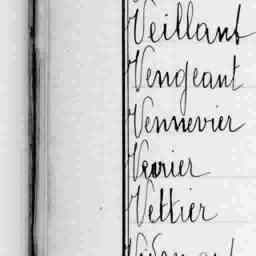 Veillant
Vengeant
Vennevier
Verrier
Vettier